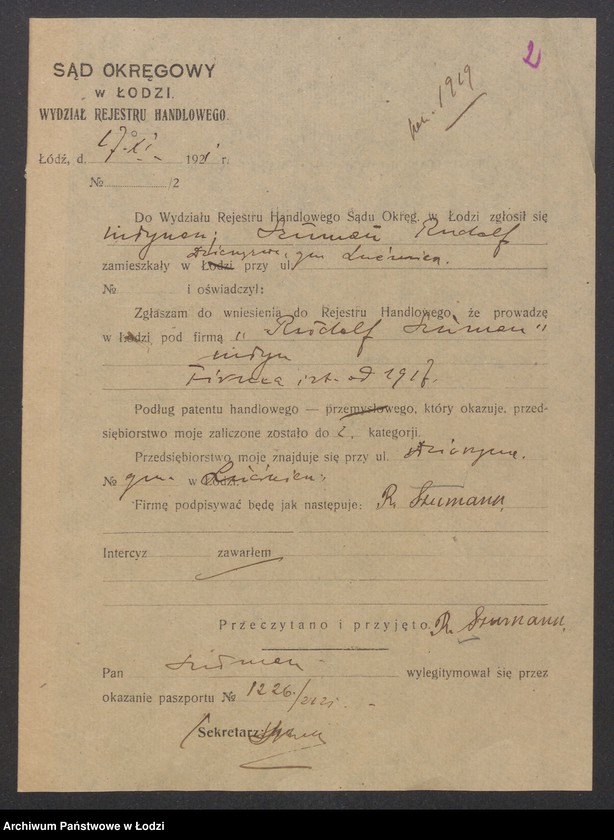 2
SĄD OKRĘGOWY
w ŁODZI.
WYDZIAŁ REJESTRU HANDLOWEGO.
1919
Łódź, d. 17 XI 1921 r.
№ /2
Do Wydziału Rejestru Handlowego Sądu Okręg. w Łodzi zgłosił się
Szuman Rudolf
zamieszkały w Łodzi przy ul. gm
№ i oświadczył:
Zgłaszam do wniesienia do Rejestru Handlowego, że prowadzę
w Łodzi, pod firmą „Rudolf Szuman"
młyn
Firma ist. od 1917.
Podług patentu handlowego — przemysłowego, który okazuje, przed-
siębiorstwo moje zaliczone zostało do 2, kategorji.
Przedsiębiorstwo moje znajduje się przy ul.
№ gm. w Łodzi.
Firmę podpisywać będę jak następuje: R. Szumann
Intercyz zawarłem
Przeczytano i przyjęto. R. Szumann
Pan Szuman wylegitymował się przez
okazanie paszportu № 1226
Sekretarz:
Archiwum Państwowe w Łodzi